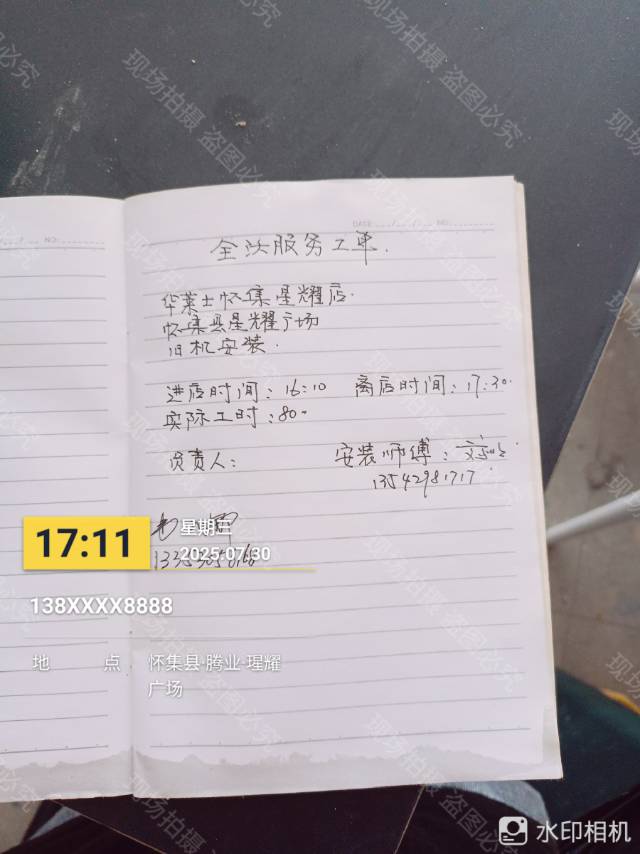 DATE NO:
NO:
全 服务工单.
华莱士怀集星耀店.
怀集县星耀广场
旧机安装.
进店时间：16:10 离店时间：17:30.
实际工时：80.
负责人： 安装师傅：
13542981717
17:11
星期三
2025-07-30
138XXXX8888
地 点 怀集县·腾业·瑆耀
广场
现场拍摄 盗图必究
水印相机